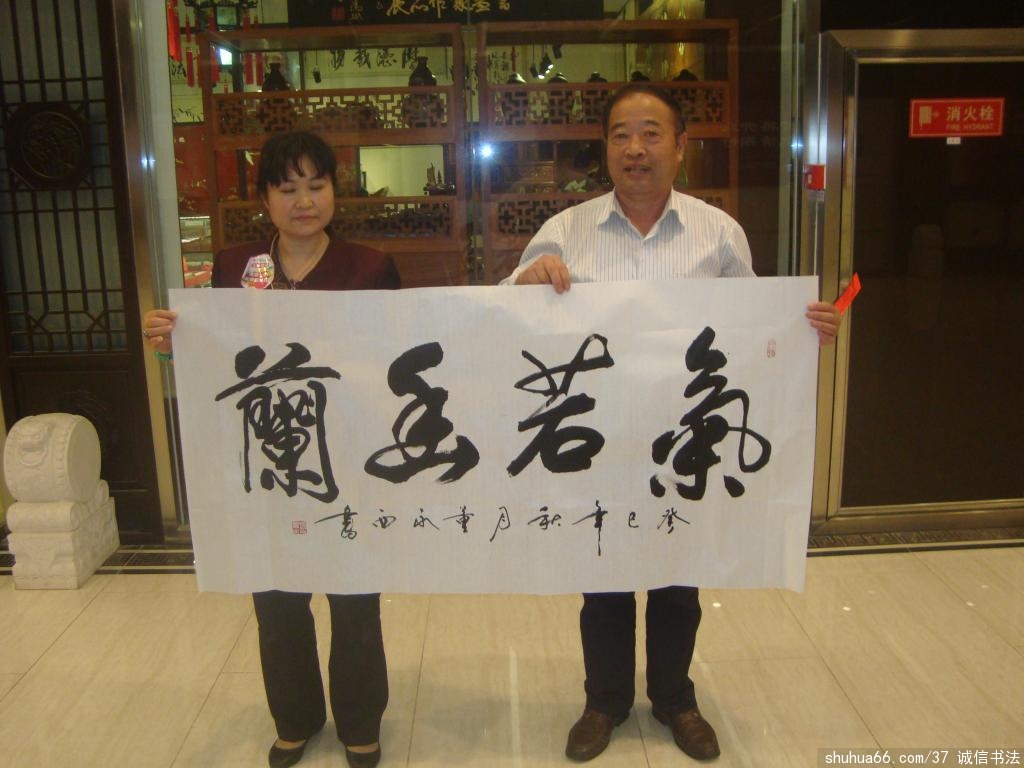 厚德載物
消火栓
FIRE HYDRANT
氣若幽蘭
癸巳年秋月董永西書
shuhua66.com/37 诚信书法